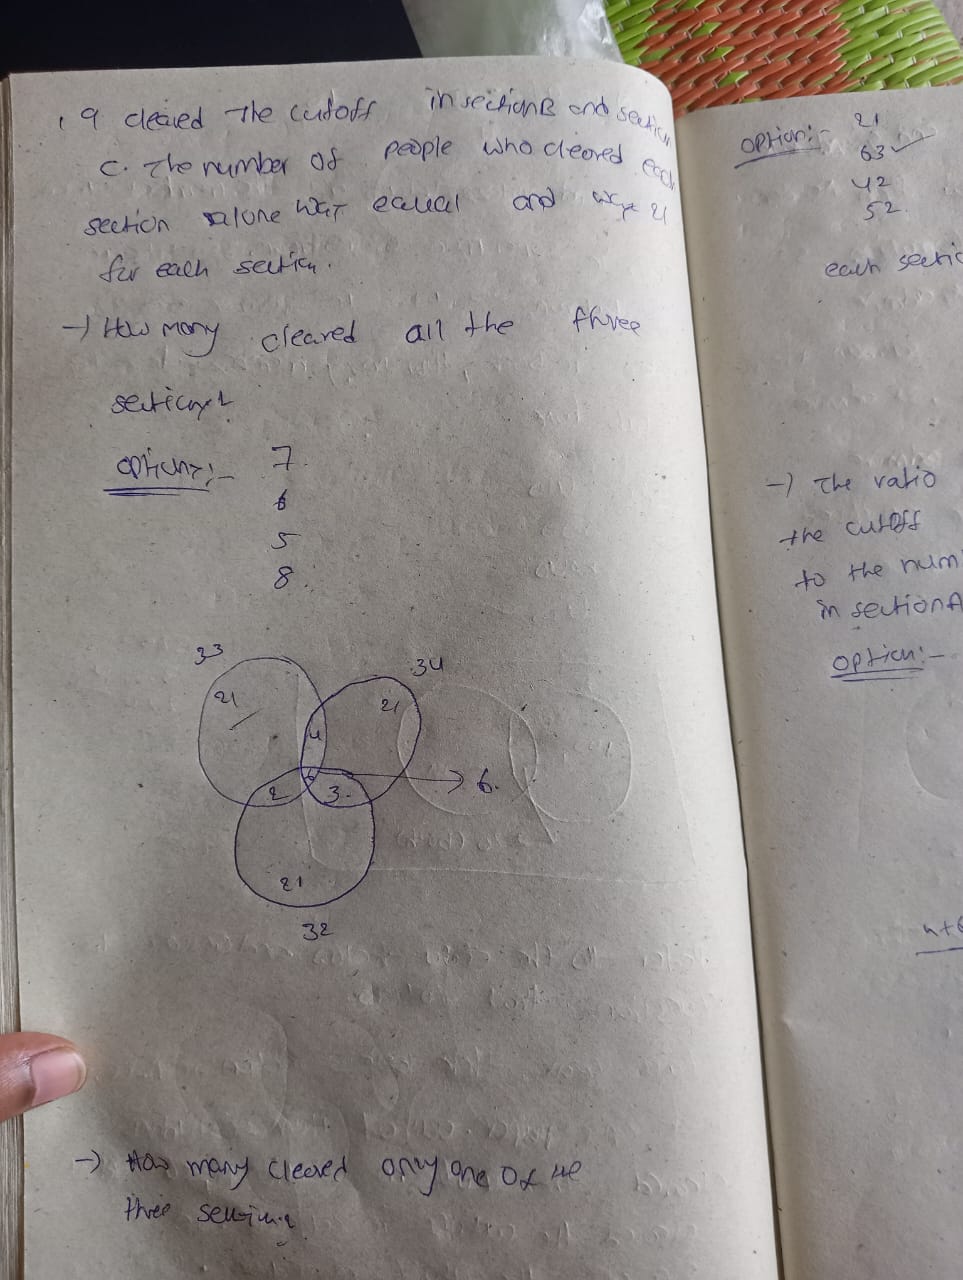 , 9 cleared the cutoff in section B and section
C. The number of people who cleared each
section alone was equal and was 21
for each section.
→ How many cleared all the three
sections
options:-
7.
6
5
8.
33
34
21
21
4
6
→ 6.
2
3.
21
32
→ How many cleared only one of the
three
option:- 21
63 ✓
42
52.
each sectio
→ The ratio
the cutoff
to the num
in section A
option:-